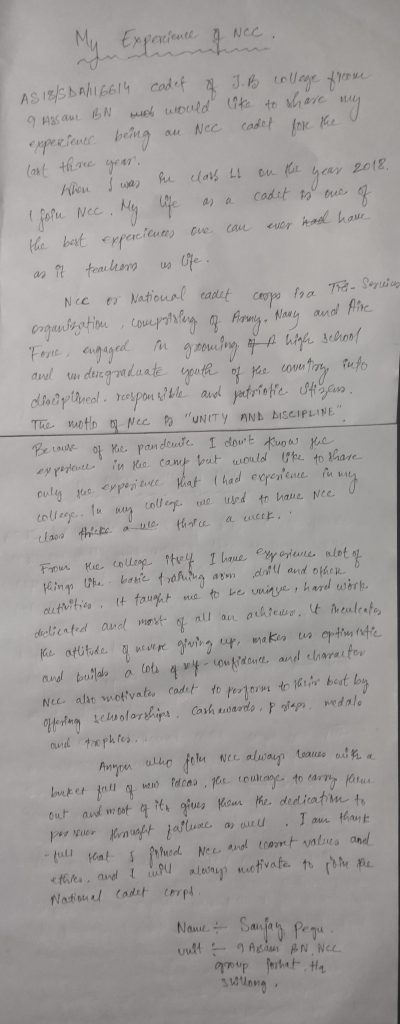 My Experience of NCC.
AS18/SDA/116614 cadet of J.B college from
9 Assam BN would like to share my
experience being an NCC cadet for the
last three year.
When I was in class 11 on the year 2018.
I join NCC. My life as a cadet is one of
the best experiences one can ever have
as it teachers us life.
NCC or National cadet corps is a Tri-Services
organization, comprising of Army, Navy and Air
Force, engaged in grooming of high school
and undergraduate youth of the country into
disciplined. responsible and patriotic citizens.
The motto of NCC is "UNITY AND DISCIPLINE".
Because of the pandemic I don't know the
experience in the camp but would like to share
only the experience that I had experience in my
college. In my college we used to have NCC
class thrice a week.
From the college itself I have experience alot of
things like basic training arm drill and other
activities. It taught me to be unique, hard work
dedicated and most of all an achiever. It inculcates
the attitude of never giving up, makes us optimistic
and builds a lots of self-confidence and character
NCC also motivates cadet to perform to their best by
offering scholarships, Cash awards, prizes, medals
and trophies.
Anyone who join NCC always leaves with a
bucket full of new ideas, the courage to carry them
out and most of its gives them the dedication to
through failure as well. I am thank
-full that I joined NCC and learnt values and
ethics. and I will always motivate to join the
National Cadet Corps.
Name :- Sanjay Pegu.
unit :- 9 Assam BN NCC
group Jorhat. Hq
Shillong.